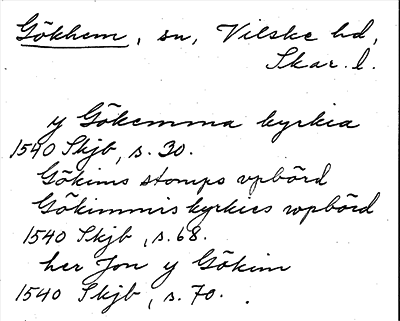 Gökhem, sn, Vilske hd,
Skar. l.
y Gökemma kyrkia
1540 Skjb, s. 30.
Gökims stomps vpbörd
Gökimmis kyrkies wpbörd
1540 Skjb, s. 68.
her Jon y Gökim
1540 Skjb, s. 70.